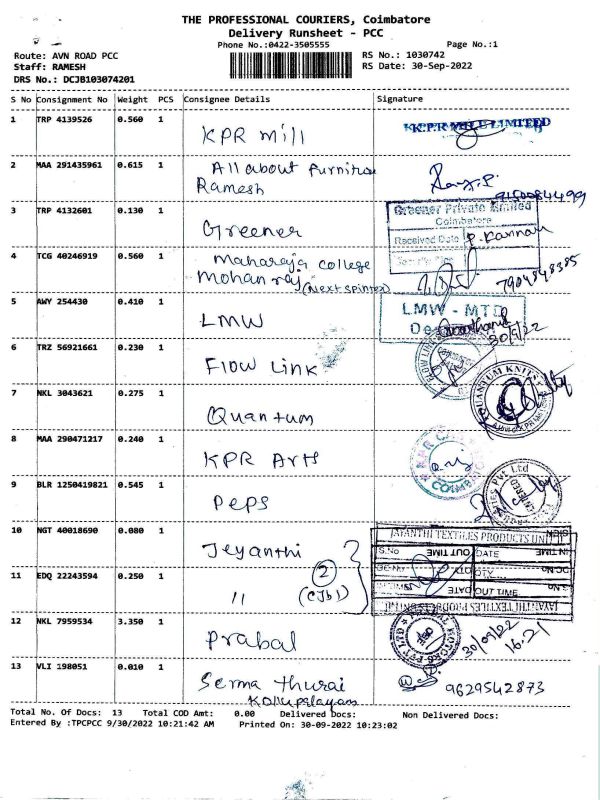 THE PROFESSIONAL COURIERS, Coimbatore
Delivery Runsheet - PCC
Phone No.:0422-3505555
Page No.:1
Route: AVN ROAD PCC
RS No.: 1030742
Staff: RAMESH
RS Date: 30-Sep-2022
DRS No.: DCJB103074201
S No Consignment No Weight PCS Consignee Details Signature
1 TRP 4139526 0.560 1 KPR mill K.P.R MILL LIMITED
2 MAA 291435961 0.615 1 All about furniture
Ramesh
3 TRP 4132601 0.130 1 Greener
Greener Private Limited
Coimbatore
Received Date P. Kannan
4 TCG 40246919 0.560 1 Maharaja college
Mohan raj (Next spintex)
7904848385
5 AWY 254430 0.410 1 LMW
LMW - MTD
30/9/22
6 TRZ 56921661 0.230 1 Flow Link
7 NKL 3043621 0.275 1 Quantum
8 MAA 290471217 0.240 1 KPR Arts
9 BLR 1250419821 0.545 1 Peps
10 NGT 40018690 0.080 1 Jeyanthi
JAYANTHI TEXTILES PRODUCTS UNIT
S.No OUT TIME DATE IN TIME
11 EDQ 22243594 0.250 1 "
2
(CJb1)
DATE OUT TIME
JAYANTHI TEXTILES PRODUCTS UNIT
12 NKL 7959534 3.350 1 Prabal
30/09/22
16.21
13 VLI 198051 0.010 1 Serma Thurai
Kallupalayam
9629542873
Total No. Of Docs: 13 Total COD Amt: 0.00 Delivered Docs: Non Delivered Docs:
Entered By :TPCPCC 9/30/2022 10:21:42 AM Printed On: 30-09-2022 10:23:02